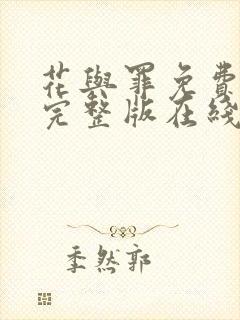 花與罪免費
完整版在綫
季然郭